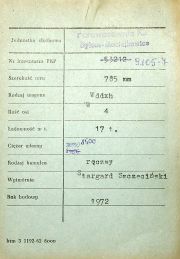 Jednostka służbowa
Nr inwentarza PKP 53212 9105-7
Szerokość toru 785 mm
Rodzaj wagonu Wddxh
Ilość osi 4
Ładowność w t. 17 t.
Ciężar własny 8500
Rodzaj hamulca ręczny
Wytwórnia Stargard Szczeciński
Rok budowy 1972